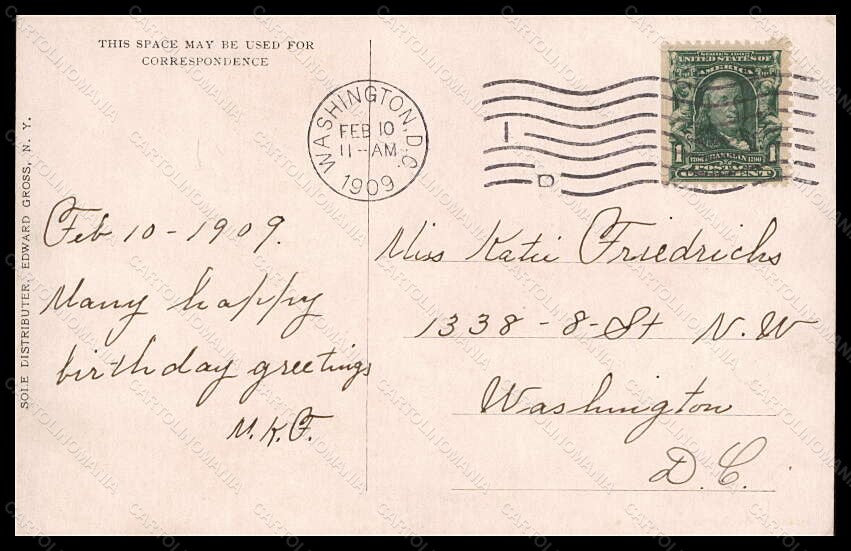 THIS SPACE MAY BE USED FOR
CORRESPONDENCE
WASHINGTON, D.C.
FEB 10
11-AM
1909
1
D
SERIES 1902
UNITED STATES OF
AMERICA
1706 FRANKLIN 1790
1 POSTAGE 1
ONE CENT
SOLE DISTRIBUTER, EDWARD GROSS, N. Y.
Feb 10-1909.
Many happy
birthday greetings
M.K.F.
Miss Katie Friedrichs
1338-8-St N.W
Washington
D.C.
CARTOLINOMANIA